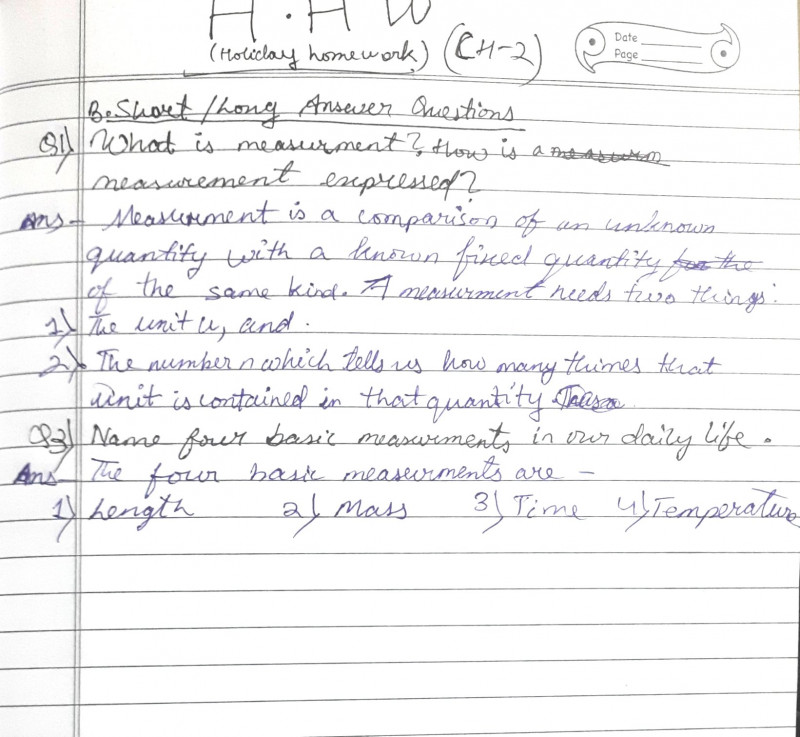 H.HW
(Holiday homework) (CH-2)
Date
Page
B. Short / Long Answer Questions
Q1) What is measurment? How is a
measurement expressed?
Ans- Measurment is a comparison of an unknown
quantity with a known fixed quantity for the
of the same kind. A measurment needs two things:
1) The unit u, and.
2) The number n which tells us how many thimes that
unit is contained in that quantity
Q2) Name four basic measurments in our daily life.
Ans- The four basic measurments are -
1) Length 2) Mass 3) Time 4) Temperature